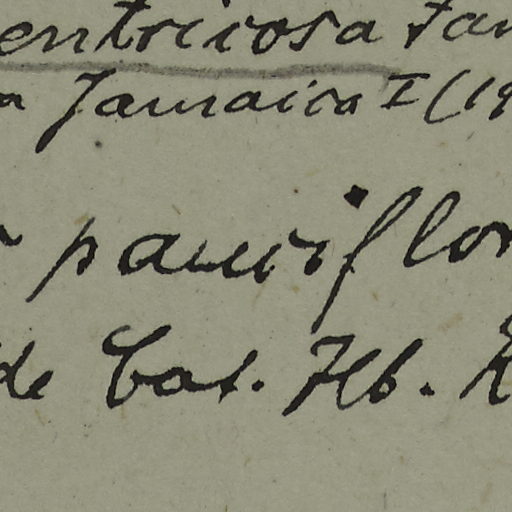 entricosa Faw
Jamaica I (19
pauciflor
de Cat. Hb.